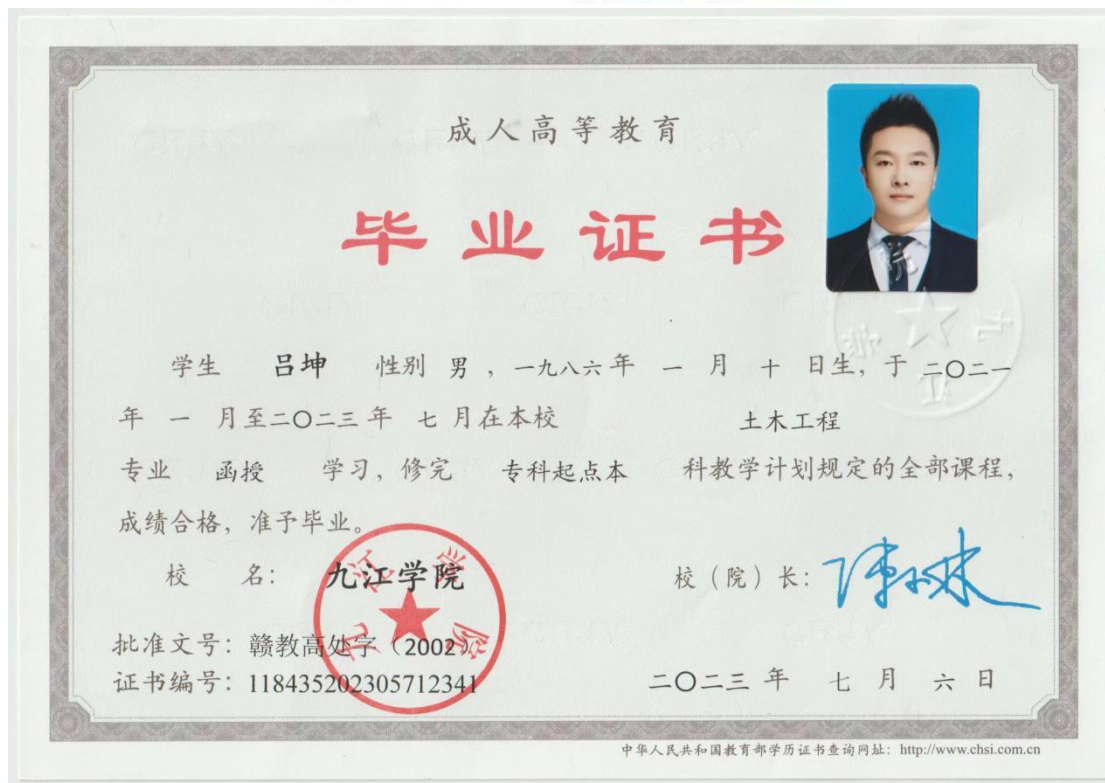 成人高等教育
毕业证书
学生 吕坤 性别 男，一九八六年 一 月 十 日生，于 二〇二一
年 一 月至二〇二三年 七 月在本校 土木工程
专业 函授 学习，修完 专科起点本 科教学计划规定的全部课程，
成绩合格，准予毕业。
校 名： 九江学院 校（院）长：
九江学院
批准文号：赣教高处字（2002）
证书编号：118435202305712341
二〇二三 年 七 月 六 日
中华人民共和国教育部学历证书查询网址：http://www.chsi.com.cn